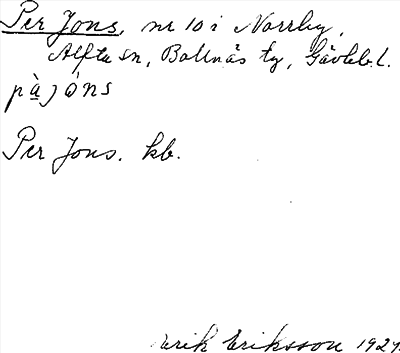 Per Jons, nr 10 i Norrby,
Alfta sn, Bollnäs tg, Gävleb. l.
pà jóns
Per Jons. kb.
Erik Eriksson 1927.